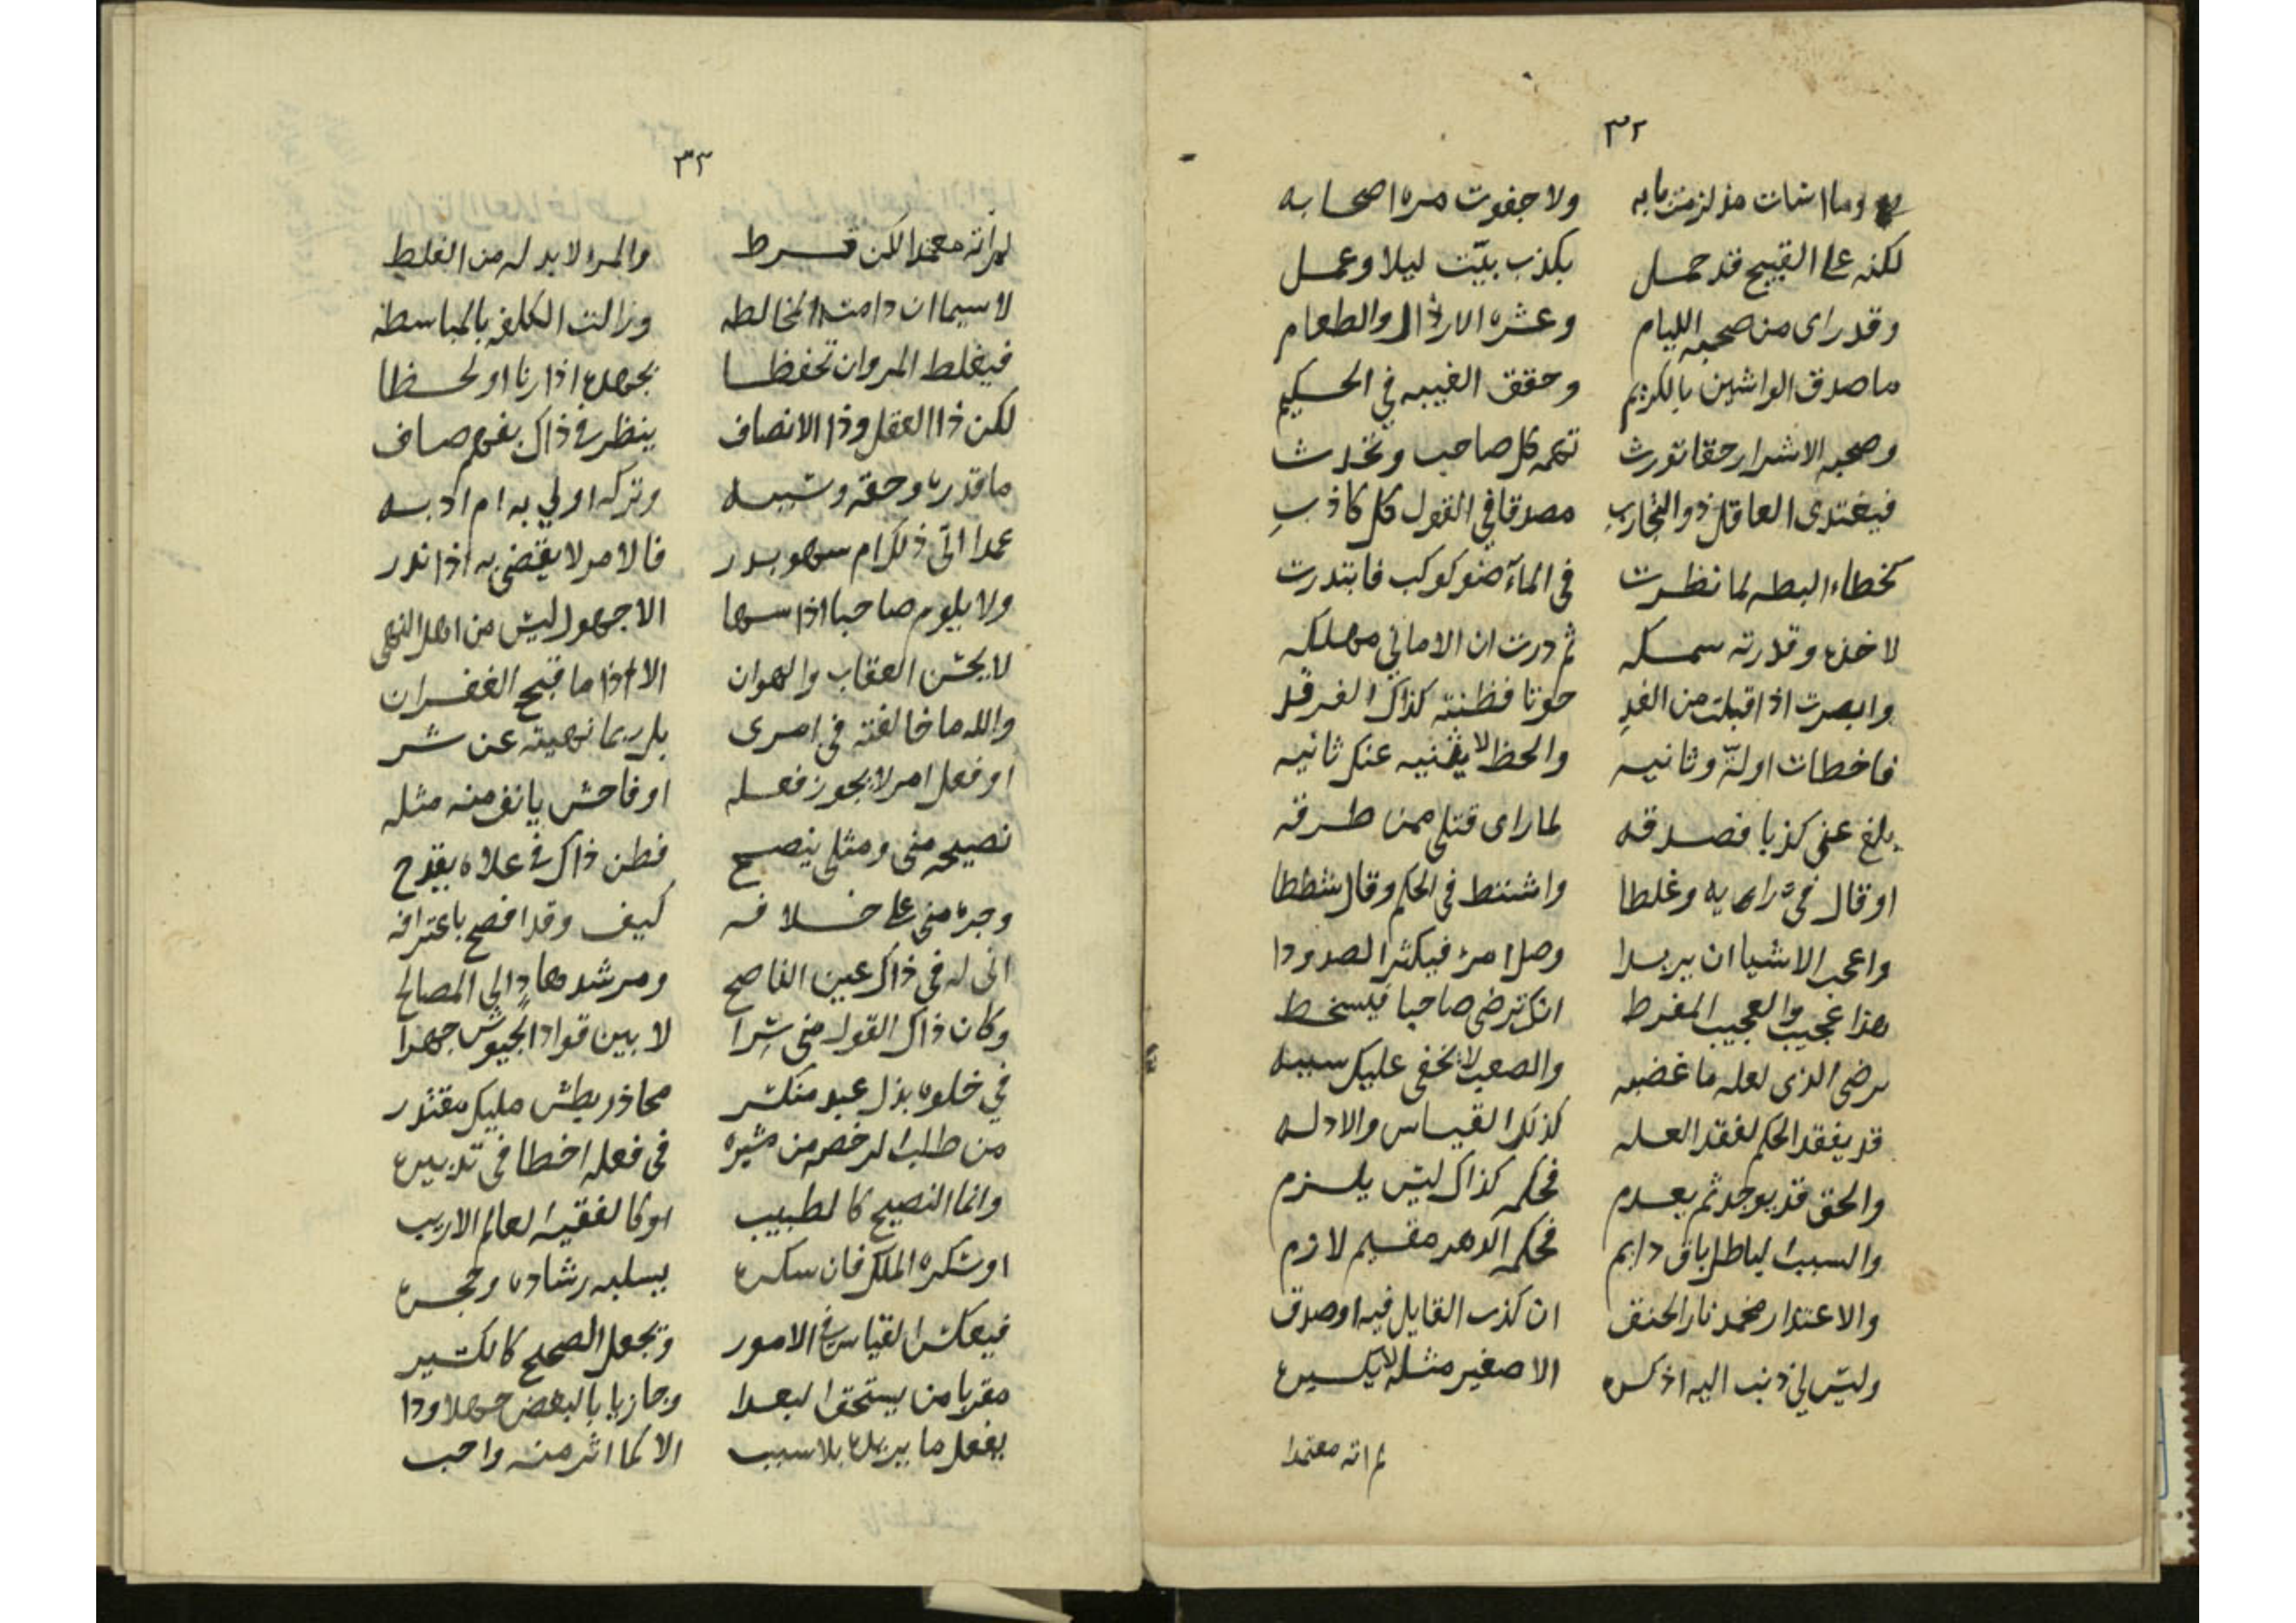 ٣٢
وما اسات مذ لزمت بابه ولا جفوت مره اصحابه
لكنه على القبيح قد حمل بكذب بيّت ليلا وعمل
وقد راى من صحبه الليام وعشره الارذال والطعام
ما صدق الواشين بالكريم وحقق الغيبه في الحكيم
وصحبه الاشرار حقا تورث تهمه كل صاحب وتحدث
فيغتدى العاقل ذو التجارب مصدقا في القول كل كاذب
كخطاء البطه لما نظرت في الماء ضو كوكب فابتدرت
لاخذه وقدرته سمكه ثم درت ان الاماني مهلكه
وابصرت اذ اقبلت من الغد حوتا فظنته كذاك الفرقد
فاخطات اولة وثانيه والحظ لا يثنيه عنك ثانيه
بلغ عني كذبا فصدقه لما راى قتلى ممن طرقه
او قال في رايه وغلطا واشتط في الحكم وقال شططا
واعجب الاشيا ان يريدا وصل امرء فيكثر الصدودا
هذا عجيب والعجيب المفرط انك ترضى صاحبا فيسخط
يرضى الذى لعله ما غضبه والصعب لا يخفى عليك سببه
قد يفقد الحكم لفقد العله كذلك القياس والادله
والحق قد يوجد ثم يعدم فحكمه كذاك ليس يلزم
والسبب الباطل باق دايم فحكمه الدهر مقيم لازم
والاعتذار مخمد نار الحنق ان كذب القايل فيه او صدق
وليس لي ذنب اليه اذكره الا صغير مثله لا يكسيره
لم اته معتمدا
٣٣
لم اته معتمدا لكن فرط والمرء لا بد له من الغلط
لا سيما ان دامت المخالطه وزالت الكلفه بالمباسطه
فيغلط المر وان تحفظا بجهده اذا رنا او لحظا
لكن ذا العقل وذا الانصاف ينظر في ذاك بفهم صاف
ما قدره وحقه وسببه وتركه اولى به ام ادبه
عمدا اتى ذلك ام سهو بدر فالامر لا يقضى به اذا ندر
ولا يلوم صاحبا اذا سها الا جهول ليس من اهل النهى
لا يحسن العقاب والهوان الا اذا ما قبح الغفران
والله ما خالفته في امرى بل ربما نهيته عن شر
او فعل امر لا يجوز فعله او فاحش يانف منه مثله
نصيحه منى ومثلى ينصح فظن ذاك في علاه يقدح
وجره منى على خلافه كيف وقد افصح باعترافه
انى له في ذاك عين الناصح ومرشد هاد الي المصالح
وكان ذاك القول منى سرا لا بين قواد الجيوش جهرا
في خلوه بذل عبد منكسر محاذر بطش مليك مقتدر
من طلب الرخصه من مشيره في فعله اخطا في تدبيره
وانما النصيح كالطبيب او كالفقيه العالم الاريب
او سكره الملك فان سكره يسلبه رشاده وحجره
فيعكس القياس في الامور وتجعل الصحيح كالكسير
مقربا من يستحق البعدا وجازيا بالبغض جهلا ودا
يفعل ما يريده بلا سبب الا كما اثر منه واحب